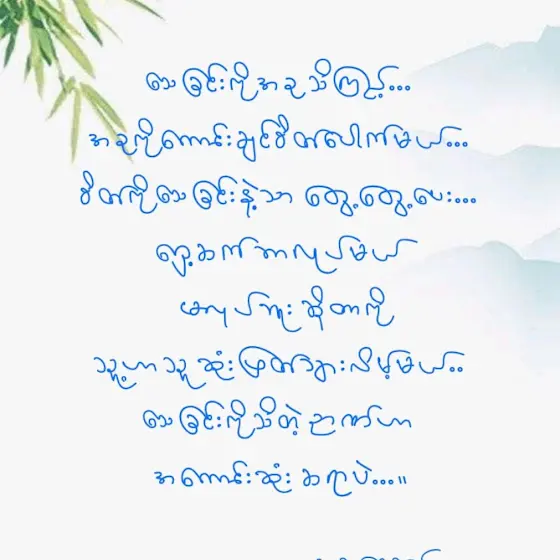 သေခြင်းကိုအခုသိကြည့်...
အခုကိုကောင်းချင်စိတ်ပေါက်မယ်...
စိတ်ကိုသေခြင်းနဲ့သာ တွေ့တွေ့ပေး...
ရှေ့ဆက်ဘာလုပ်မယ်
မလုပ်ဘူး ဆိုတာကို
သူ့ဟာသူ ဆုံးဖြတ်သွားလိမ့်မယ်..
သေခြင်းကိုသိတဲ့ ဉာဏ်ဟာ
အကောင်းဆုံး ဆရာပဲ...။